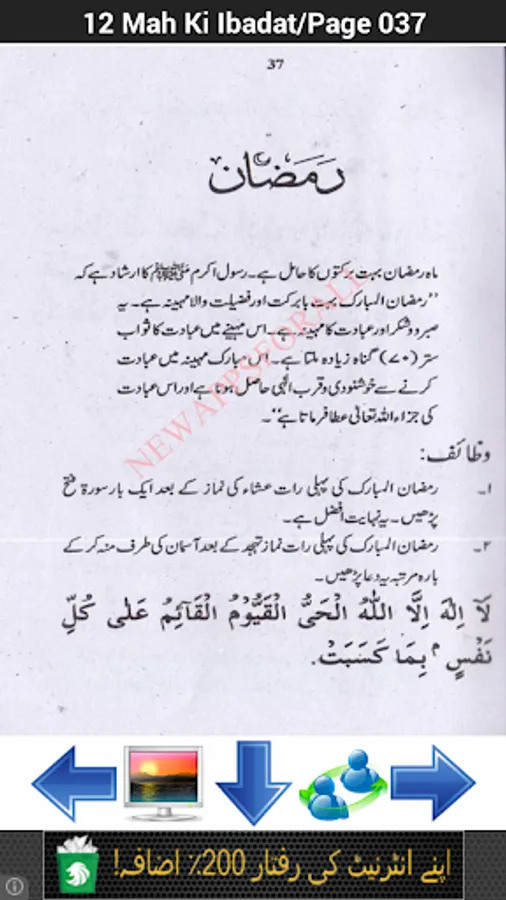 12 Mah Ki Ibadat/Page 037
37
رَمَضَان
ماہ رمضان بہت برکتوں کا حامل ہے۔ رسول اکرم ﷺ کا ارشاد ہے کہ
”رمضان المبارک بہت بابرکت اور فضیلت والا مہینہ ہے۔ یہ
صبر و شکر اور عبادت کا مہینہ ہے۔ اس مہینے میں عبادت کا ثواب
ستر (۷۰) گناہ زیادہ ملتا ہے۔ اس مبارک مہینہ میں عبادت
کرنے سے خوشنودی و قرب الٰہی حاصل ہوتا ہے اور اس عبادت
کی جزاء اللہ تعالیٰ عطا فرماتا ہے“۔
وظائف:
۱۔ رمضان المبارک کی پہلی رات عشاء کی نماز کے بعد ایک بار سورۃ فتح
پڑھیں۔ یہ نہایت افضل ہے۔
۲۔ رمضان المبارک کی پہلی رات نماز تہجد کے بعد آسمان کی طرف منہ کر کے
بارہ مرتبہ یہ دعا پڑھیں۔
لَآ اِلٰهَ اِلَّا اللّٰهُ الْحَیُّ الْقَیُّوْمُ الْقَآئِمُ عَلٰی كُلِّ
نَفْسٍ م بِمَا كَسَبَتْ.
NEWAPPSFORALL
اپنے انٹرنیٹ کی رفتار 200٪ اضافہ!